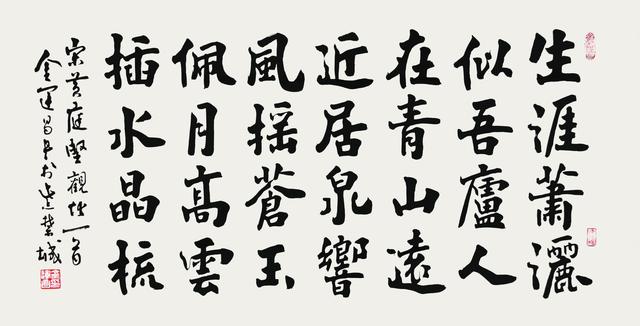 生涯蕭灑
似吾廬人
在青山遠
近居泉響
風搖蒼玉
佩月高雲
插水晶梳
宋黄庭堅觀化一首
金運昌书於禁城